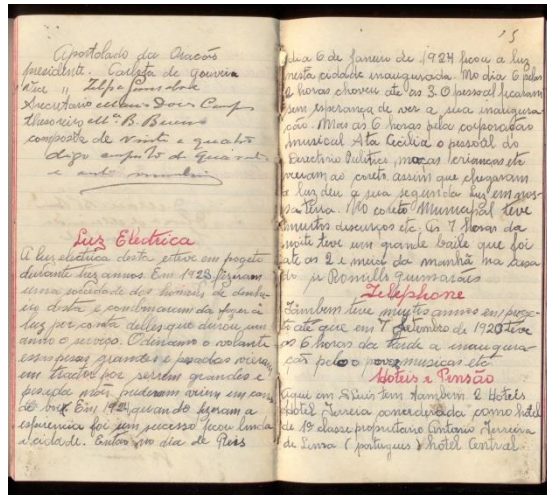 Apostolado da Oração
presidente. Carlota de Gouveia
vice " Zelpa
Secretario Doces
thesoreiro Mª B. Bueno
composta de vinte e quatro
digo
e
Luz Electrica
A luz electrica desta esteve em progeto
durante tres annos. Em 1923 fizeram
uma sociedade dos homens de dinhei-
ro desta e combinaram da fazer a
luz por conta delles que durou um
anno o serviço. O dinamo o volante
essas pesas grandes e pesadas vieram
em tractor por serrem grandes e
pesada não puderam virem em carro
de boi. Em 1924 quando fizeram a
esperiencia foi um sucesso ficou linda
a cidade. Entao no dia de Reis
15
dia 6 de Janeiro de 1924 ficou a luz
nesta cidade inaugurada. No dia 6 pelas
2 horas choveu até as 3. O pessoal ficaram
sem esperança de ver a sua inaugura-
ção. Mas as 6 horas pela corporação
musical Sta Cicilia o pessoal do
Directorio Politico, moças crianças etc
vieram ao coreto assim que chegaram
a luz deu a sua segunda luz em nos-
sa terra. No coreto Municipal teve
muitos discursos etc. As 7 horas da
noite teve um grande baile que foi
até as 2 e meia da manhã na casa
do sr Romillo Guimarães
Telephone
Tambem teve muitos annos em proge-
to até que em 7 Setembro de 1920 teve
as 6 horas da tarde a inaugura-
ção pelo o povo musicas etc
Hoteis e Pensão
Aqui em S. Luis tem tambem 2 Hoteis
Hotel Ferreira conciderado como hotel
de 1ª classe proprietario Antonio Ferreira
de Souza (portugues) hotel Central